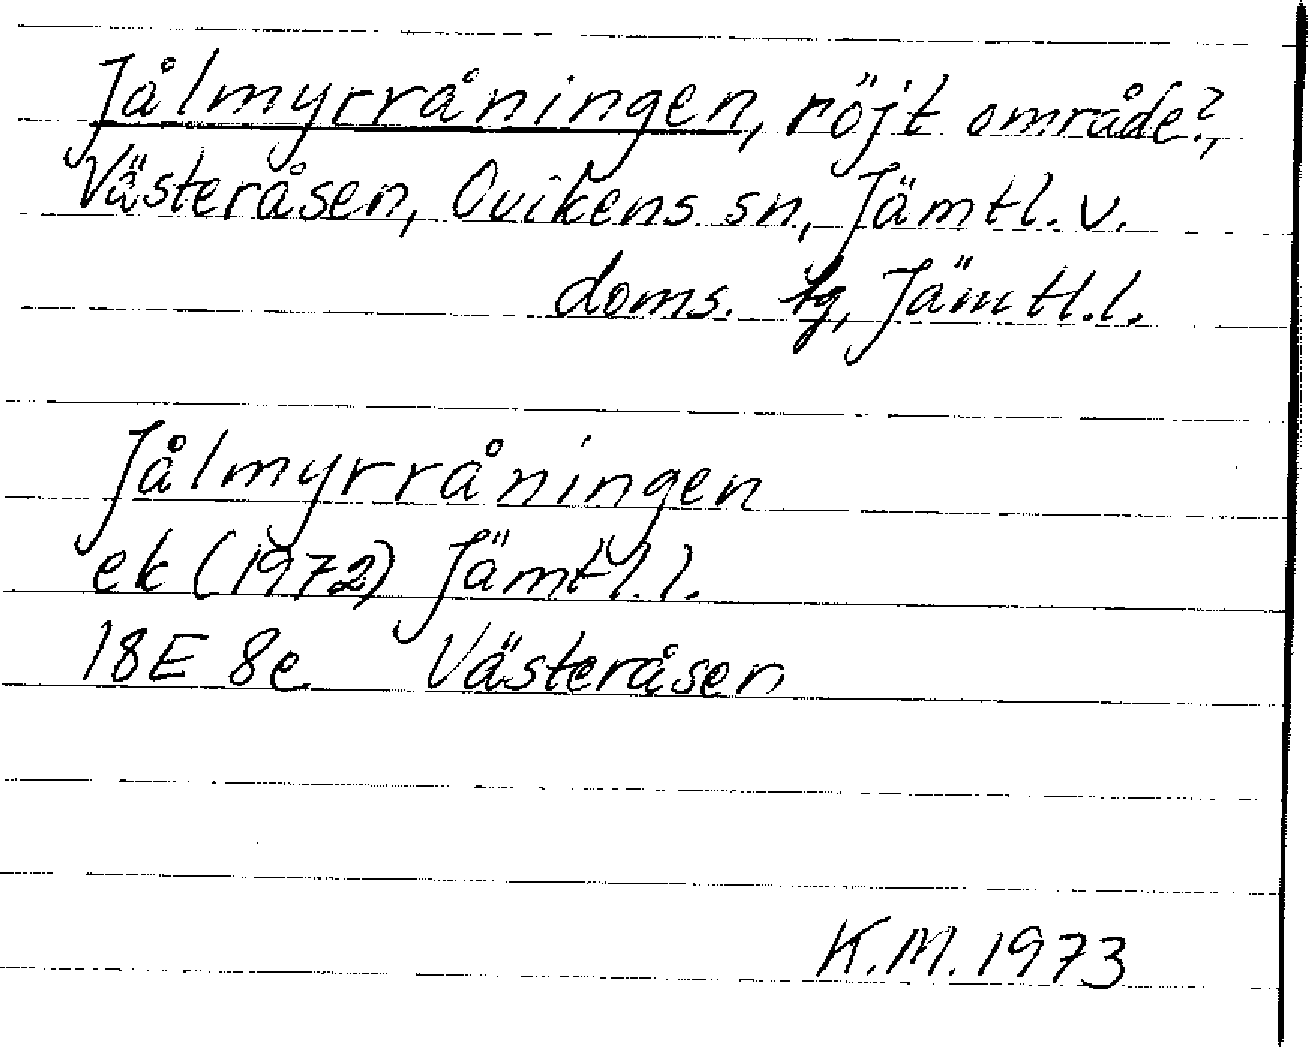 Jålmyrråningen, röjt område?,
Västeråsen, Ovikens sn, Jämtl. v.
doms. tg, Jämtl.l.
Jålmyrråningen
ek (1972) Jämtl.l.
18E 8e Västeråsen
K.M. 1973